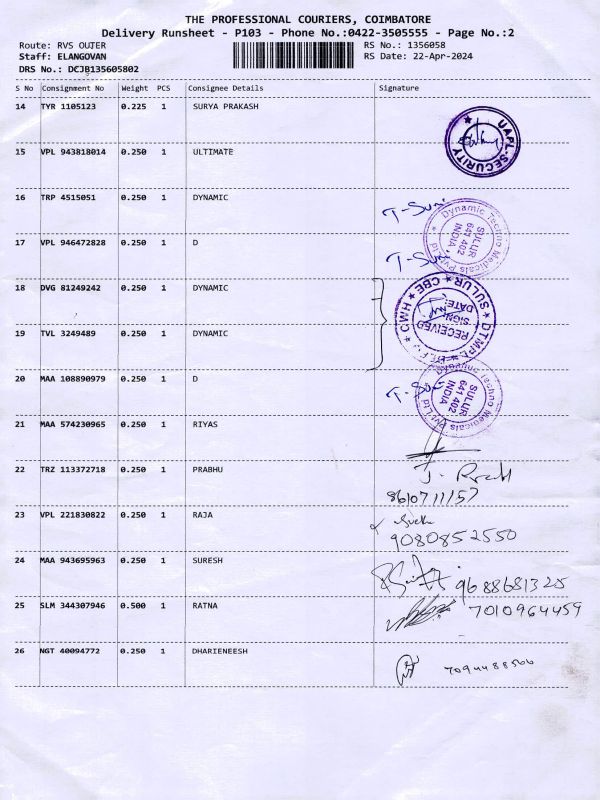 THE PROFESSIONAL COURIERS, COIMBATORE
Delivery Runsheet - P103 - Phone No.:0422-3505555 - Page No.:2
Route: RVS OUTER
RS No.: 1356058
Staff: ELANGOVAN
RS Date: 22-Apr-2024
DRS No.: DCJB135605802
S No Consignment No Weight PCS Consignee Details Signature
14 TYR 1105123 0.225 1 SURYA PRAKASH
UAPL-SECURITY
15 VPL 943818014 0.250 1 ULTIMATE
16 TRP 4515051 0.250 1 DYNAMIC
T-Suri
Dynamic Techno Medicals Pvt Ltd
SULUR
641 402
INDIA
17 VPL 946472828 0.250 1 D
T-Suri
18 DVG 81249242 0.250 1 DYNAMIC
DTMPL CWH SULUR CBE
RECEIVED
SIGN:
DATE:
19 TVL 3249489 0.250 1 DYNAMIC
20 MAA 108890979 0.250 1 D
Dynamic Techno Medicals Pvt Ltd
SULUR
641 402
INDIA
21 MAA 574230965 0.250 1 RIYAS
22 TRZ 113372718 0.250 1 PRABHU
8610711157
23 VPL 221830822 0.250 1 RAJA
9080852550
24 MAA 943695963 0.250 1 SURESH
9688681325
25 SLM 344307946 0.500 1 RATNA
7010964459
26 NGT 40094772 0.250 1 DHARIENEESH
7094488566